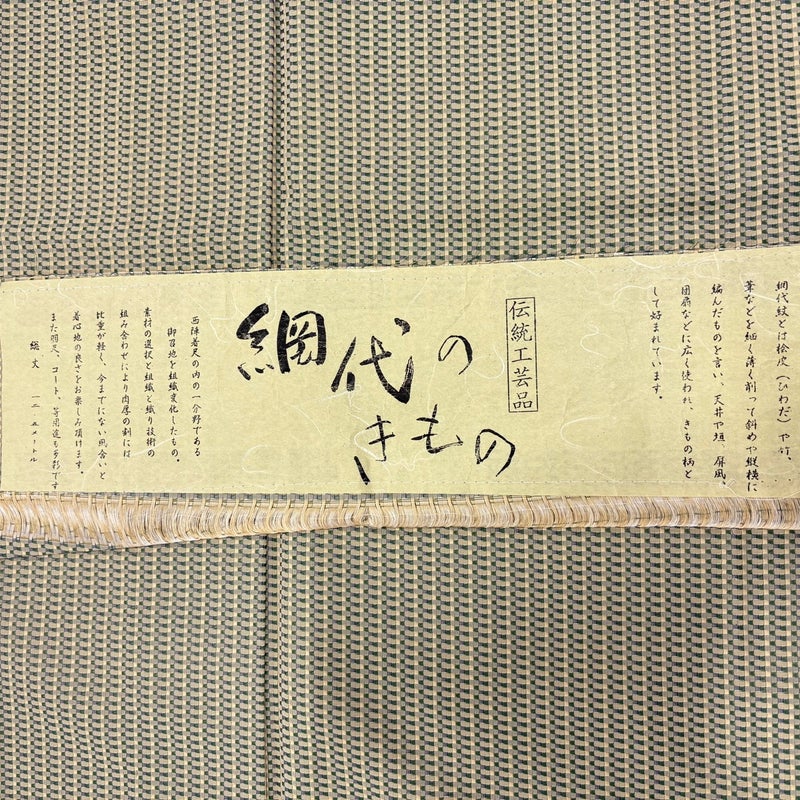 網代紋とは桧皮(ひわだ)や竹、
葦などを細く薄く削って斜めや縦横に
編んだものを言い、天井や垣、屏風、
団扇などに広く使われ、きもの柄と
して好まれています。
伝統工芸品
網代の
きもの
西陣着尺の内の一分野である
御召地を組織変化したもの。
素材の選択と組織と織り技術の
組み合わせにより肉厚の割には
比重が軽く、今までにない風合いと
着心地の良さをお楽しみ頂けます。
また羽尺、コート、等用途も多彩です
総丈 一二・五メートル